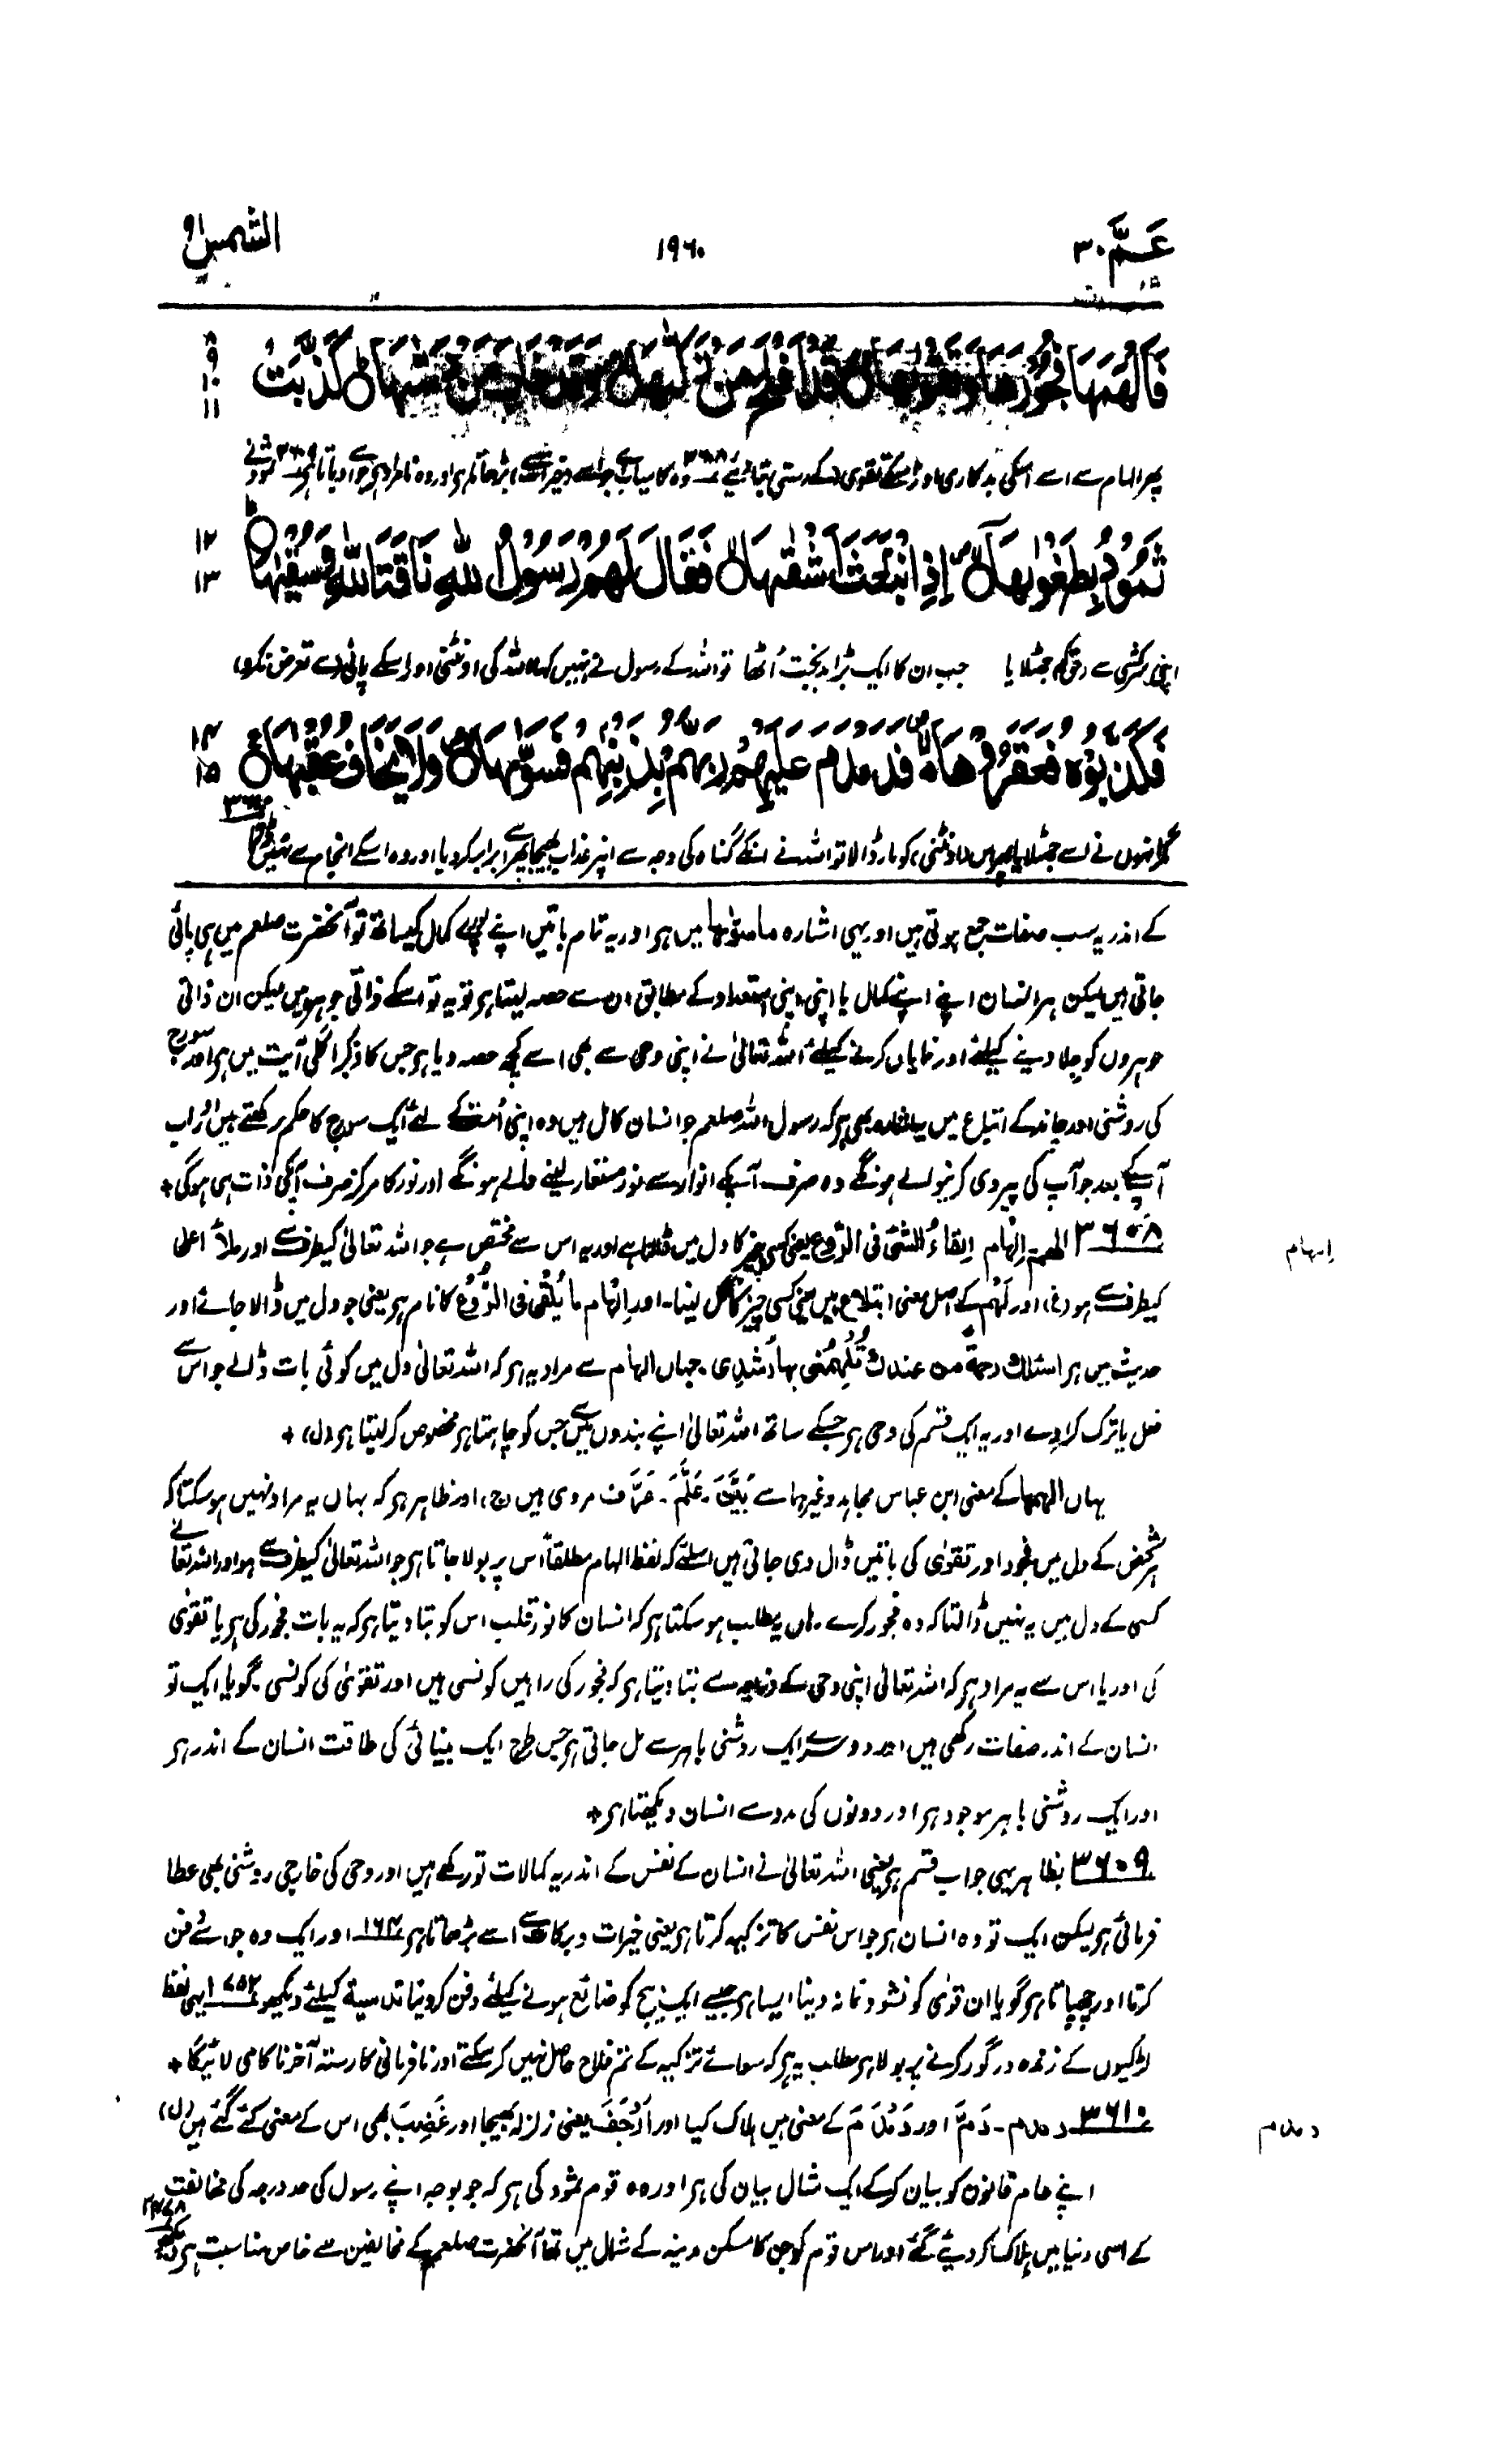 عَمَّ ٣٠
١٩٦٠
الشمس ٩١
فَاَلْهَمَهَا فُجُوْرَهَا وَتَقْوٰىهَا قَدْ اَفْلَحَ مَنْ زَكّٰىهَا وَقَدْ خَابَ مَنْ دَسّٰىهَا كَذَّبَتْ
٨
٩
١٠
١١
پھر الہام سے اسے اسکی بدکاری اور اسکے تقوی (کے رستے) بتا دئیے ٣٦٠٨ وہ کامیاب ہے جو اسے بڑھاتا ہر اور وہ نامراد ہے جو اسے دباتا ہر ٣٦٠٩ ثمود نے
ثَمُوْدُ بِطَغْوٰىهَا اِذِ انْۢبَعَثَ اَشْقٰىهَا فَقَالَ لَهُمْ رَسُوْلُ اللّٰهِ نَاقَةَ اللّٰهِ وَسُقْيٰهَا
١٢
١٣
اپنی سرکشی سے (حق کو) جھٹلایا جب ان کا ایک بڑا بدبخت اُٹھا تو اللہ کے رسول نے انہیں کہا اللہ کی اونٹنی اور اسکے پانی (سے تعرض نہ کرو)
فَكَذَّبُوْهُ فَعَقَرُوْهَا فَدَمْدَمَ عَلَيْهِمْ رَبُّهُمْ بِذَنْۢبِهِمْ فَسَوّٰىهَا وَلَا يَخَافُ عُقْبٰهَا
١٤
١٥
مگر انہوں نے اسے جھٹلایا پھر اس (اونٹنی) کو مار ڈالا تو اللہ نے انکے گناہ کی وجہ سے انپر عذاب بھیجا پھر اسے برابر کردیا اور وہ اسکے انجام سے نہیں ڈرتا ٣٦١٠
کے اندر یہ سب صفات جمع ہوتی ہیں اور یہی اشارہ ماسوّٰىها میں ہر اور یہ تمام باتیں اپنے پورے کمال کیساتھ تو آنحضرت صلعم میں ہی پائی
جاتی ہیں لیکن ہر انسان اپنے اپنے کمال یا اپنی اپنی استعداد کے مطابق ان سے حصہ لیتا ہر تو یہ تو اسکے ذاتی جوہر ہیں لیکن ان ذاتی
جوہروں کو جلا دینے کیلئے اور نمایاں کرنے کیلئے اللہ تعالیٰ نے اپنی وحی سے بھی اسے کچھ حصہ دیا ہر جس کا ذکر اگلی آیت میں ہر اور سورج
کی روشنی اور چاند کے اتباع میں یہ اشارہ بھی ہر کہ رسول اللہ صلعم جو انسان کامل ہیں وہ اپنی اُمت کے لئے ایک سورج کا حکم رکھتے ہیں اور اب
آپکے بعد جو آپ کی پیروی کرنیوالے ہونگے وہ صرف آپکے انوار سے نور مستعار لینے والے ہونگے اور نور کا مرکز صرف آپکی ذات ہی ہوگی +
٣٦٠٨ الھم۔ اِلْهَام اِلقاءُ الشئ فی الرُّوع یعنی کسی چیز کا دل میں ڈالنا ہے اور یہ اس سے مختص ہے جو اللہ تعالیٰ کیطرف سے اور ملأ اعلیٰ
اِلہام
کیطرف سے ہو (غ) اور لَهْم کے اصل معنی ابتلاع ہیں یعنی کسی چیز کا نگل لینا۔ اور اِلْهَام مایُلْقٰی فی الرُّوْع کا نام ہر یعنی جو دل میں ڈالا جائے اور
حدیث میں ہر اسئلك رحمةً من عندك تُلْهِمُنی بها رُشْدِی۔ جہاں الہام سے مراد یہ ہر کہ اللہ تعالیٰ دل میں کوئی بات ڈالے جو اسے
فعل یا ترک کرا دے اور یہ ایک قسم کی وحی ہر جسکے ساتھ اللہ تعالیٰ اپنے بندوں میں سے جس کو چاہتا ہر مخصوص کر لیتا ہر (ل) +
یہاں الھمھا کے معنی ابن عباس مجاہد وغیرہما سے بَيَّنَ۔ عَلَّمَ۔ عَرَّفَ مروی ہیں (ج) اور ظاہر ہر کہ یہاں یہ مراد نہیں ہو سکتا کہ
ہر شخص کے دل میں فجور اور تقویٰ کی باتیں ڈال دی جاتی ہیں اسلئے کہ لفظ الہام مطلقاً اس پر بولا جاتا ہر جو اللہ تعالیٰ کیطرف سے ہو اور اللہ تعالیٰ
کسی کے دل میں یہ نہیں ڈالتا کہ وہ فجور کرے۔ ہاں یہ مطلب ہو سکتا ہر کہ انسان کا نور قلب اس کو بتا دیتا ہر کہ یہ بات فجور کی ہر یا تقویٰ
کی اور یا اس سے یہ مراد ہر کہ اللہ تعالیٰ اپنی وحی کے ذریعہ سے بتا دیتا ہر کہ فجور کی راہیں کونسی ہیں اور تقویٰ کی کونسی۔ گویا ایک تو
انسان کے اندر صفات رکھی ہیں اور دوسرے ایک روشنی باہر سے مل جاتی ہر جس طرح ایک بینائی کی طاقت انسان کے اندر ہر
اور ایک روشنی باہر موجود ہر اور دونوں کی مدد سے انسان دیکھتا ہر +
٣٦٠٩ بظاہر یہی جواب قسم ہر یعنی اللہ تعالیٰ نے انسان کے نفس کے اندر یہ کمالات تو رکھے ہیں اور وحی کی خارجی روشنی بھی عطا
فرمائی ہر لیکن ایک تو وہ انسان ہر جو اس نفس کا تزکیہ کرتا ہر یعنی خیرات و برکات سے اسے بڑھاتا ہر ١٦٤ اور ایک وہ جو اسے دفن
کرتا اور چھپاتا ہر گویا ان قویٰ کو نشو و نما نہ دینا ایسا ہر جیسے ایک بیج کو ضائع ہونے کیلئے دفن کر دینا تدسیة کیلئے دیکھو ١٧٥٢ یہی لفظ
لڑکیوں کے زندہ درگور کرنے پر بولا ہر مطلب یہ ہر کہ سوائے تزکیہ کے تم فلاح حاصل نہیں کر سکتے اور نافرمانی کا رستہ آخر ناکامی لائیگا +
٣٦١٠ دمدم۔ دَمَّ اور دَمْدَمَ کے معنی ہیں ہلاک کیا اور اَرْجَفَ یعنی زلزلہ بھیجا اور غَضِبَ بھی اس کے معنی کئے گئے ہیں (ل)
دمدم
اپنے عام قانون کو بیان کرکے ایک مثال بیان کی ہر اور وہ قوم ثمود کی ہر کہ جو بوجہ اپنے رسول کی حد درجہ کی مخالفت
کے اسی دنیا میں ہلاک کر دیئے گئے اور اس قوم کو جن کا مسکن مدینہ کے شمال میں تھا آنحضرت صلعم کے مخالفین سے خاص مناسبت ہر دیکھو